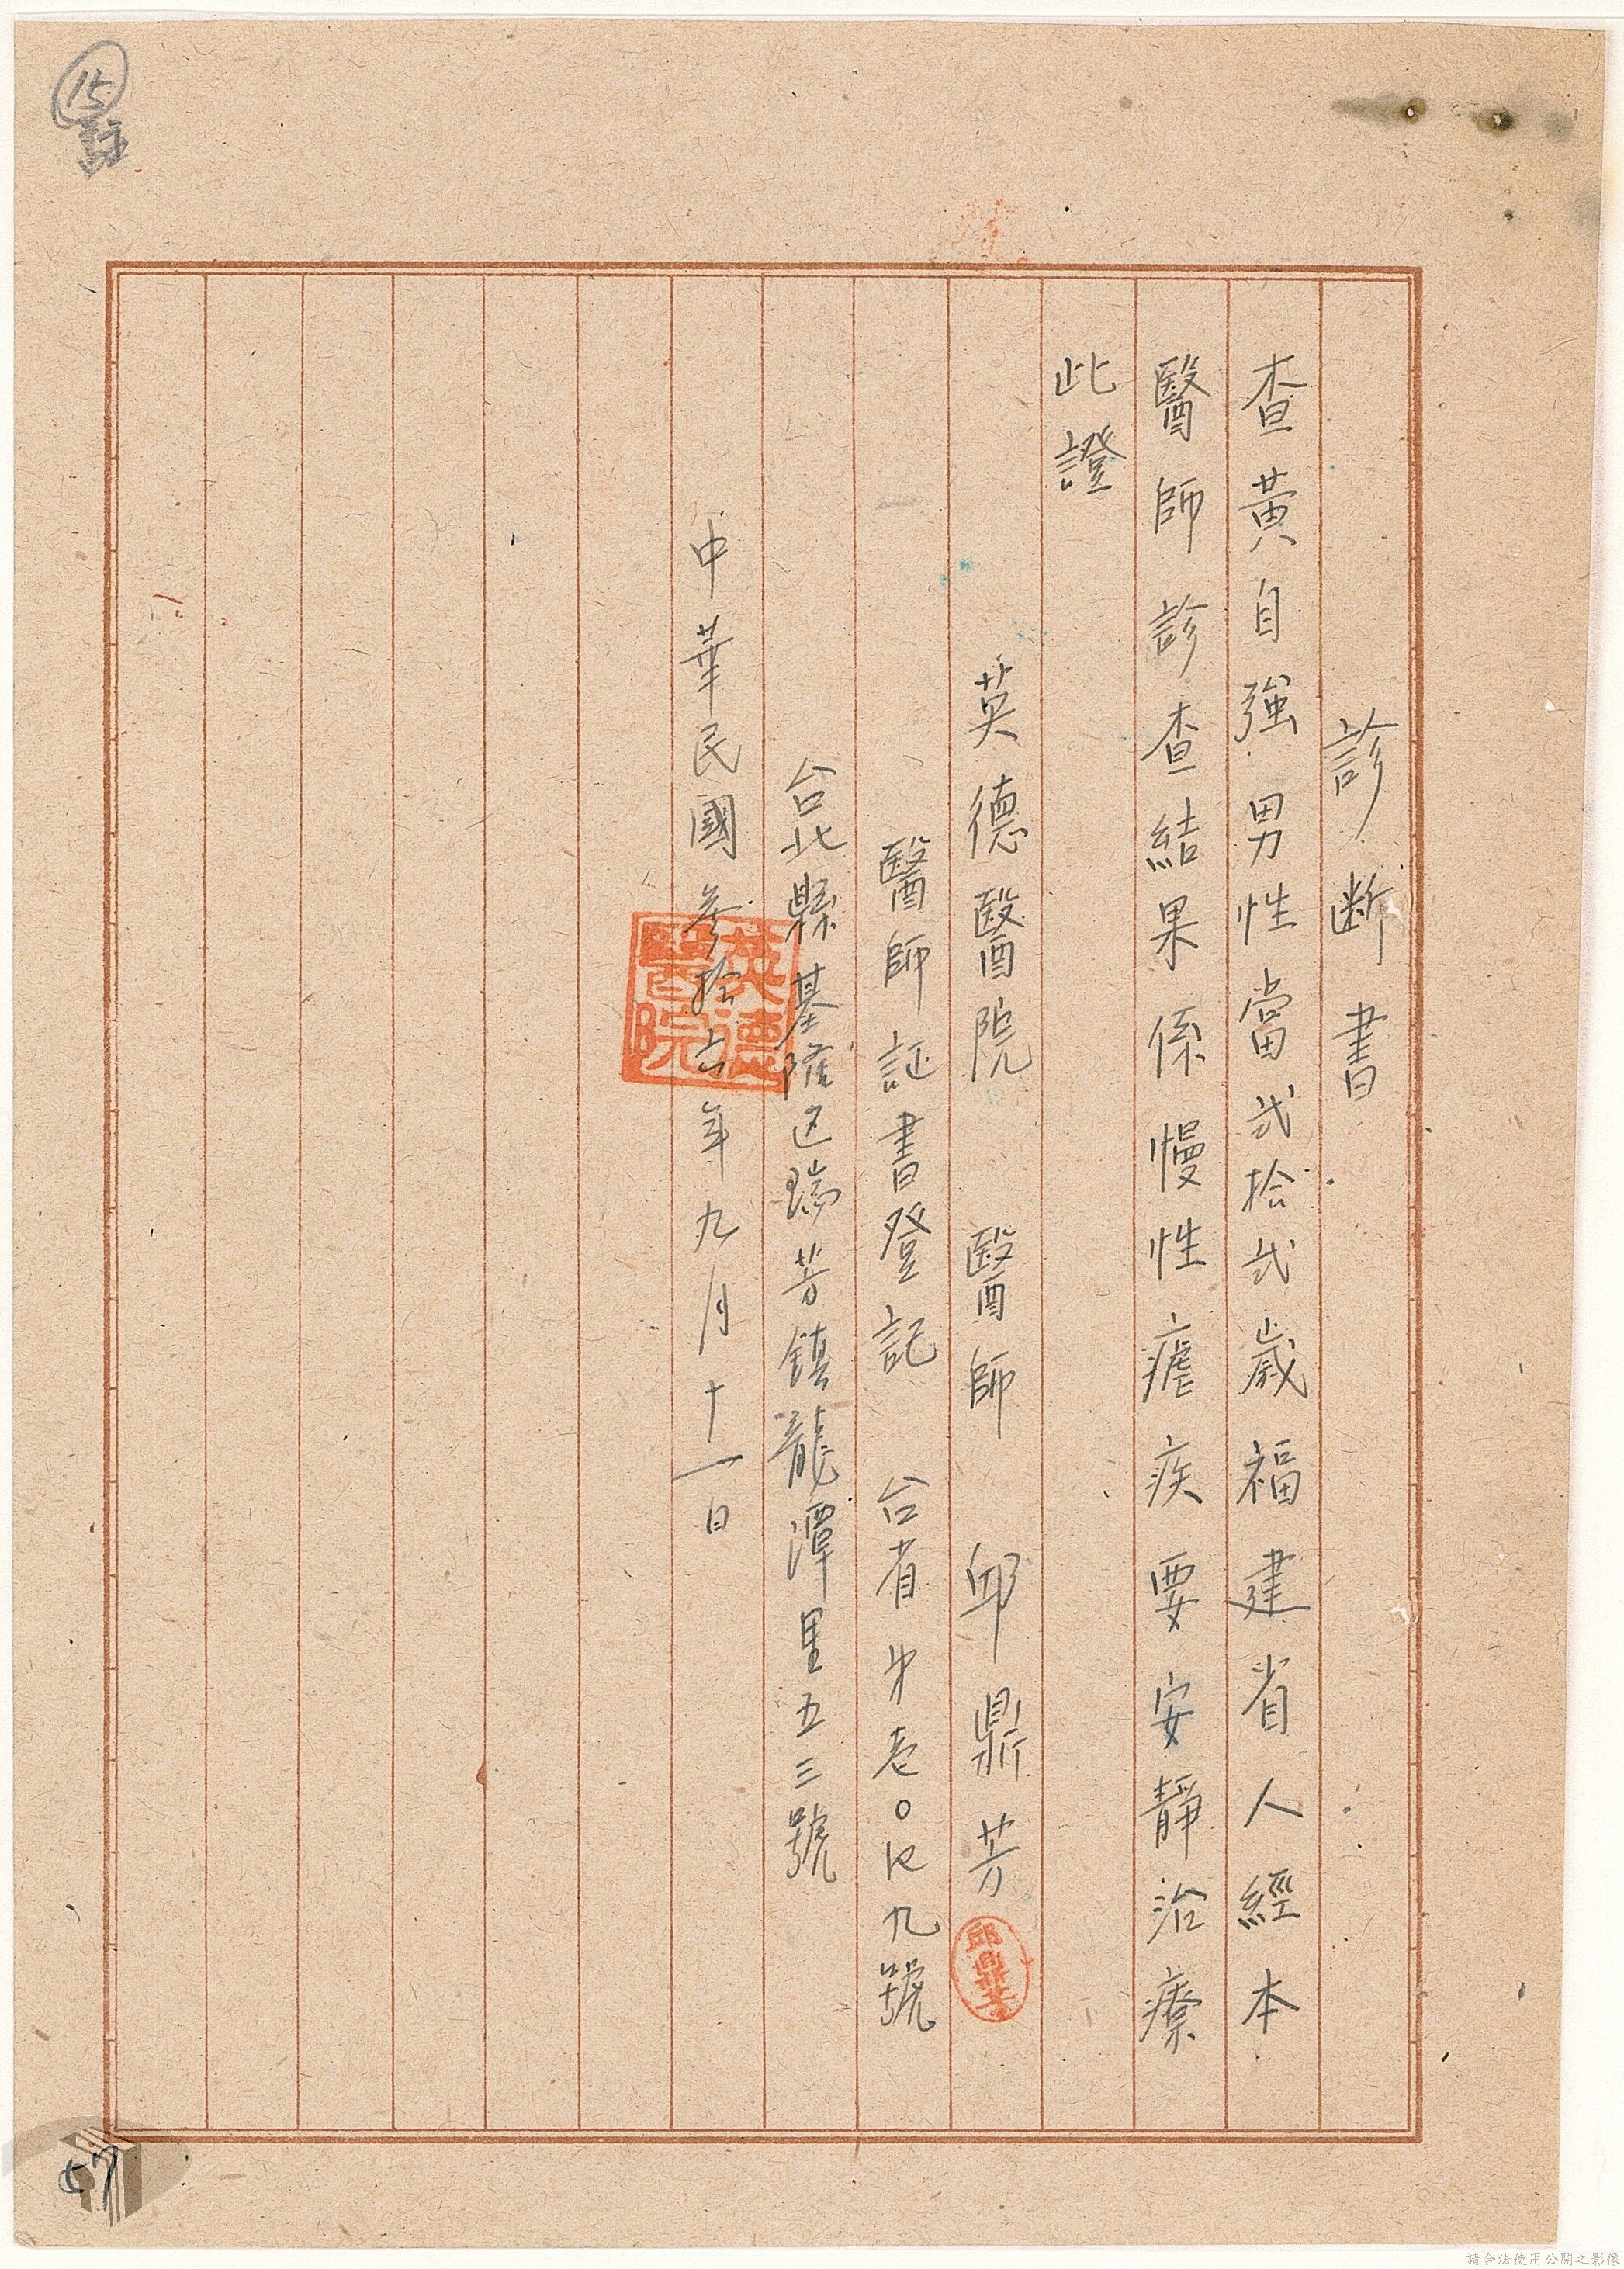 診断書
查黃自強男性當弍拾弍歲福建省人經本
醫師診查結果係慢性瘧疾要安靜治療
此證
英德醫院 醫師 邱鼎芳
邱鼎芳
醫師証書登記 台省㐧壱〇四九號
台北縣基隆区瑞芳鎮龍潭里五三號
英德醫院
中華民國參拾六年九月十一日
15
57
請合法使用公開之影像